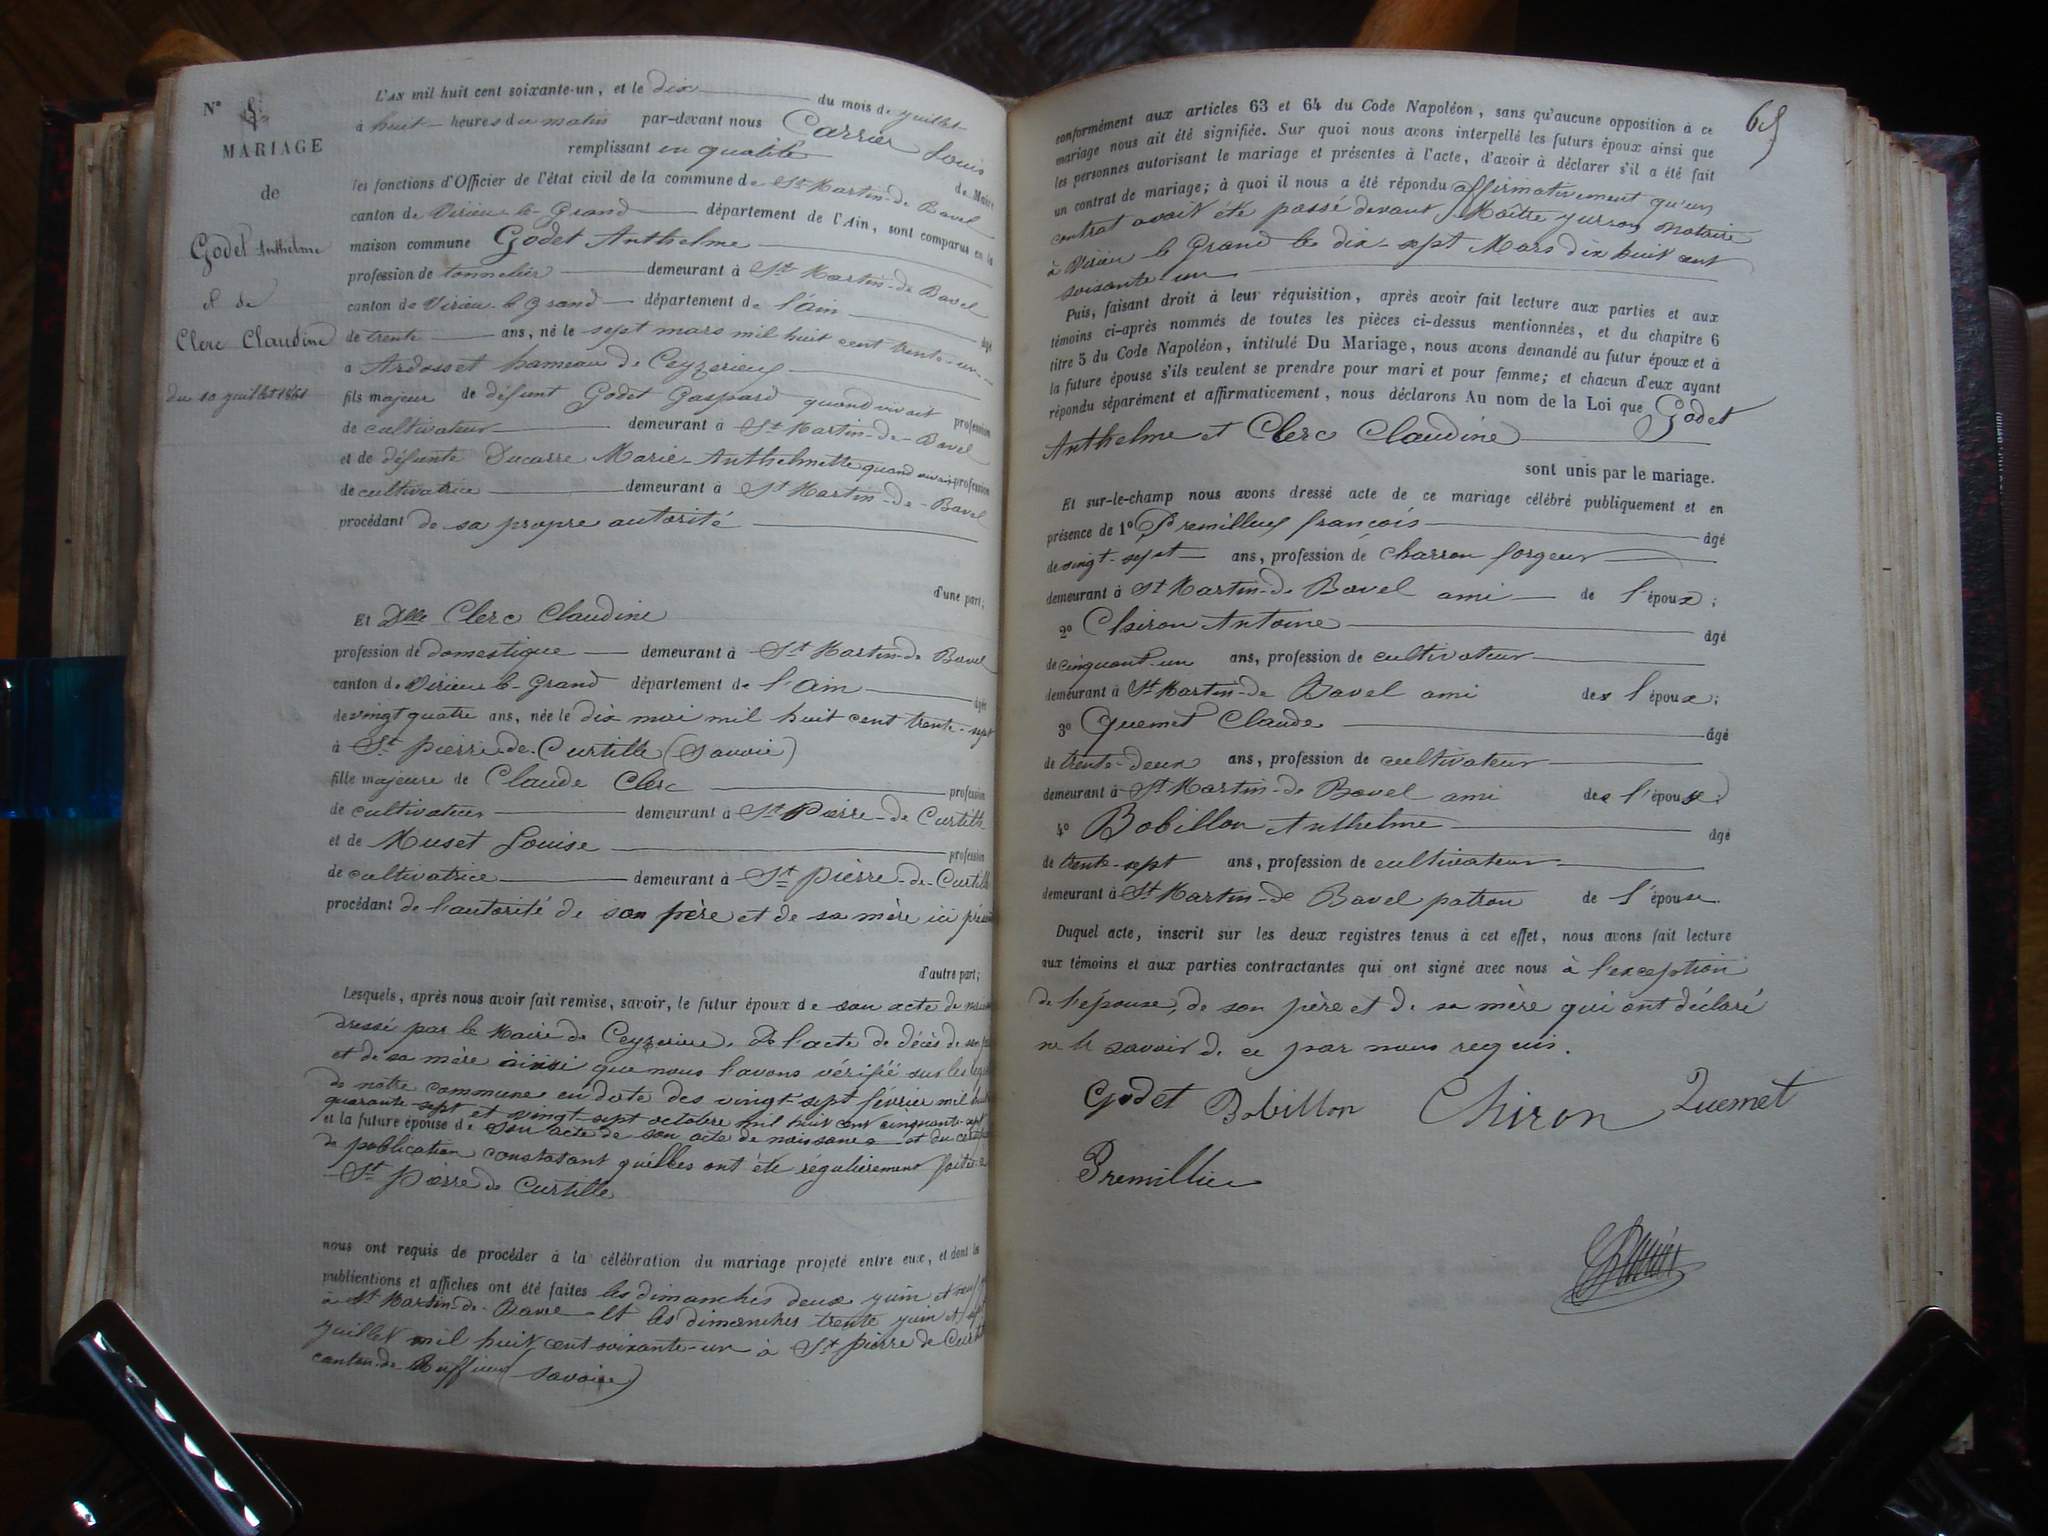 N° 8
MARIAGE
de
Godet Anthelme
et de
Clerc Claudine
du 10 juillet 1861
L'AN mil huit cent soixante-un, et le dix du mois de juillet
à huit heures du matin par-devant nous Carrier Louis
remplissant en qualité de Maire
les fonctions d'Officier de l'état civil de la commune de St-Martin-de Bavel
canton de Virieu-le-Grand département de l'Ain, sont comparus en la
maison commune Godet Anthelme
profession de tonnelier demeurant à St Martin-de Bavel
canton de Virieu-le Grand département de l'Ain âgé
de trente ans, né le sept mars mil huit cent trente-un
à Ardosset hameau de Ceyzerieu
fils majeur de défunt Godet Gaspard quand vivait profession
de cultivateur demeurant à St Martin-de-Bavel
et de défunte Ducarre Marie-Anthelmette quand vivait profession
de cultivatrice demeurant à St Martin-de-Bavel
procédant de sa propre autorité
d'une part;
Et Dlle Clerc Claudine
profession de domestique demeurant à St Martin-de Bavel
canton de Virieu-le-Grand département de l'Ain âgée
de vingt quatre ans, née le dix mai mil huit cent trente-sept
à St pierre-de-Curtille (Savoie)
fille majeure de Claude Clerc profession
de cultivateur demeurant à St Pierre-de Curtille
et de Muset Louise profession
de cultivatrice demeurant à St pierre-de-Curtille
procédant de l'autorité de son père et de sa mère ici
d'autre part;
Lesquels, après nous avoir fait remise, savoir, le futur époux de son acte de
dressé par le Maire de Ceyzerieu, De l'acte de décès de son
et de sa mère ainsi que nous l'avons vérifié sur les
de notre commune en date des vingt-sept février mil huit
quarante-sept et vingt-sept octobre mil huit cent cinquante-sept
et la future épouse de son acte de son acte de naissance et du
de publication constatant qu'elles ont été régulièrement faites à
St Pierre de Curtille
nous ont requis de procéder à la célébration du mariage projeté entre eux, et dont les
publications et affiches ont été faites les dimanches deux juin et neuf
à St Martin-de-Bavel et les dimanches trente juin et sept
juillet mil huit cent soixante-un à St pierre de Curtille
canton-de Ruffieux (Savoie)
65
conformément aux articles 63 et 64 du Code Napoléon, sans qu'aucune opposition à ce
mariage nous ait été signifiée. Sur quoi nous avons interpellé les futurs époux ainsi que
les personnes autorisant le mariage et présentes à l'acte, d'avoir à déclarer s'il a été fait
un contrat de mariage; à quoi il nous a été répondu affirmativement qu'un
contrat avait été passé devant Maître Jurron notaire
à Virieu le Grand le dix-sept Mars dix huit cent
soixante-un
Puis, faisant droit à leur réquisition, après avoir fait lecture aux parties et aux
témoins ci-après nommés de toutes les pièces ci-dessus mentionnées, et du chapitre 6
titre 5 du Code Napoléon, intitulé Du Mariage, nous avons demandé au futur époux et à
la future épouse s'ils veulent se prendre pour mari et pour femme; et chacun d'eux ayant
répondu séparément et affirmativement, nous déclarons Au nom de la Loi que Godet
Anthelme et Clerc Claudine
sont unis par le mariage.
Et sur-le-champ nous avons dressé acte de ce mariage célébré publiquement et en
présence de 1° Premilleux françois âgé
de vingt-sept ans, profession de charron forgeur
demeurant à St Martin-de Bavel ami de l'époux;
2° Chiron Antoine âgé
de cinquant-un ans, profession de cultivateur
demeurant à St Martin-de Bavel ami de l'époux;
3° Quemet Claude âgé
de trente-deux ans, profession de cultivateur
demeurant à St Martin-de Bavel ami de l'époux;
4° Bobillon Anthelme âgé
de trente-sept ans, profession de cultivateur
demeurant à St Martin-de Bavel patron de l'épouse.
Duquel acte, inscrit sur les deux registres tenus à cet effet, nous avons fait lecture
aux témoins et aux parties contractantes qui ont signé avec nous à l'exception
de l'épouse, de son père et de sa mère qui ont déclaré
ne le savoir de ce par nous requis.
Godet Bobillon Chiron Quemet
Premillieu